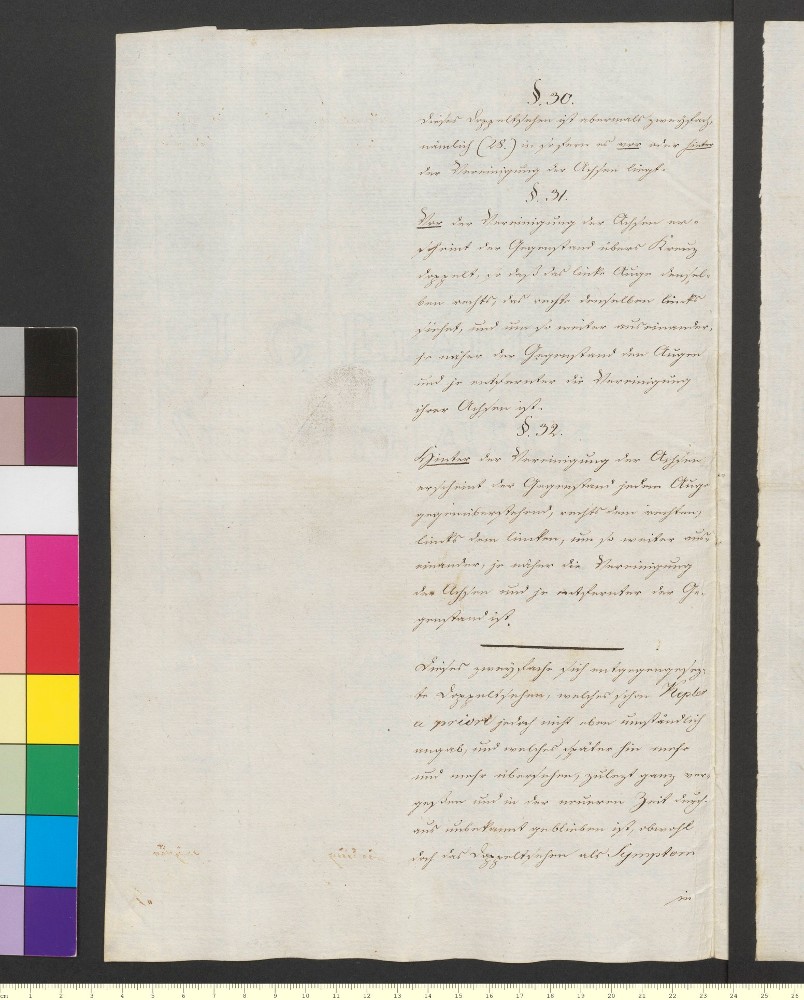 §. 30.
Dieses Doppeltsehen ist abermals zweyfach,
nämlich (28.) in sofern es vor oder hinter
der Vereinigung der Achsen liegt.
§. 31.
Vor der Vereinigung der Achsen er-
scheint der Gegenstand übers Kreuz
doppelt, so daß das linke Auge densel-
ben rechts, das rechte denselben links
siehet, und um so weiter auseinander,
je näher der Gegenstand den Augen
und je entfernter die Vereinigung
ihrer Achsen ist.
§. 32.
Hinter der Vereinigung der Achsen
erscheint der Gegenstand jedem Auge
gegenüberstehend, rechts dem rechten,
links dem linken, um so weiter aus-
einander, je näher die Vereinigung
der Achsen und je entfernter der Ge-
genstand ist.
Dieses zweyfache sich entgegengesez-
te Doppeltsehen, welches schon Kepler
a priori jedoch nicht eben umständlich
angab, und welches später hin mehr
und mehr übersehen, zulezt ganz ver-
gessen und in der neueren Zeit durch-
aus unbekannt geblieben ist, obwohl
doch das Doppeltsehen als Symptom
in